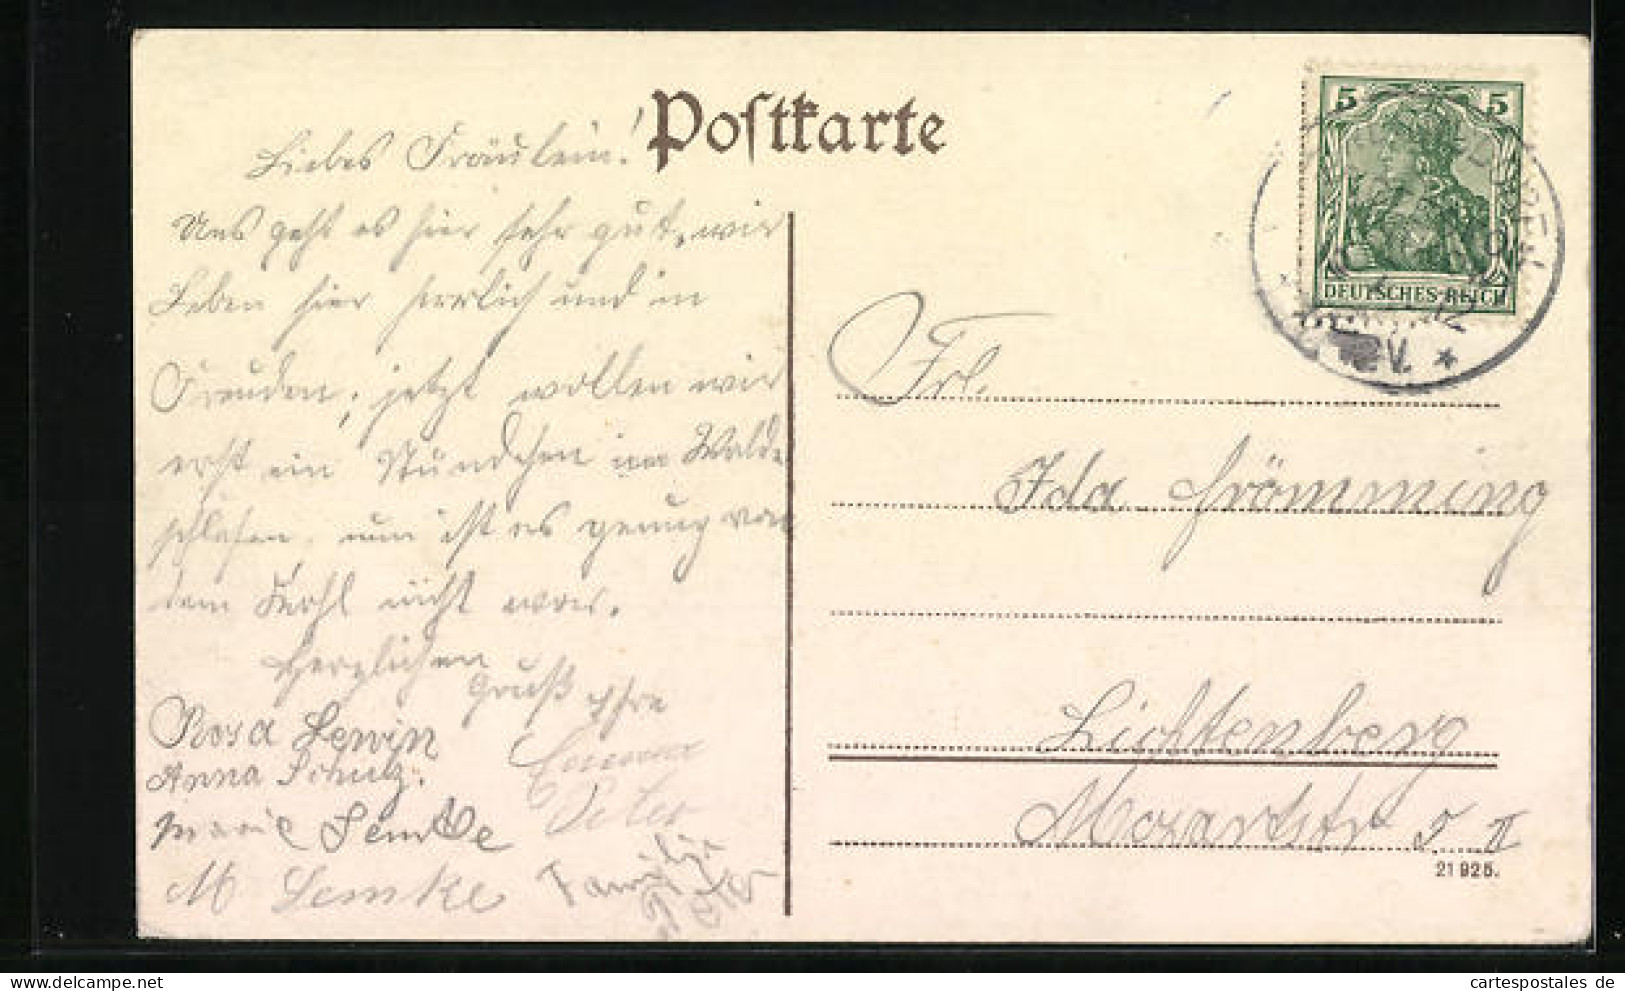 Postkarte
Liebes Fräulein!
Uns geht es hier sehr gut, wir
Leben hier herrlich und in
Freuden, jetzt wollen wir
erst ein Stündchen im Walde
schlafen, nun ist es genug von
dem nicht war.
Herzlichen
Gruß Ihre
Emma
Peter
Rosa Lewin
Anna Schulz.
Marie Lemke
M Lemke
Familie
Peter
5 5
DEUTSCHES REICH
Frl.
Ida Frömming
Lichtenberg
Mozartstr 5 II
21925.
cartespostales de